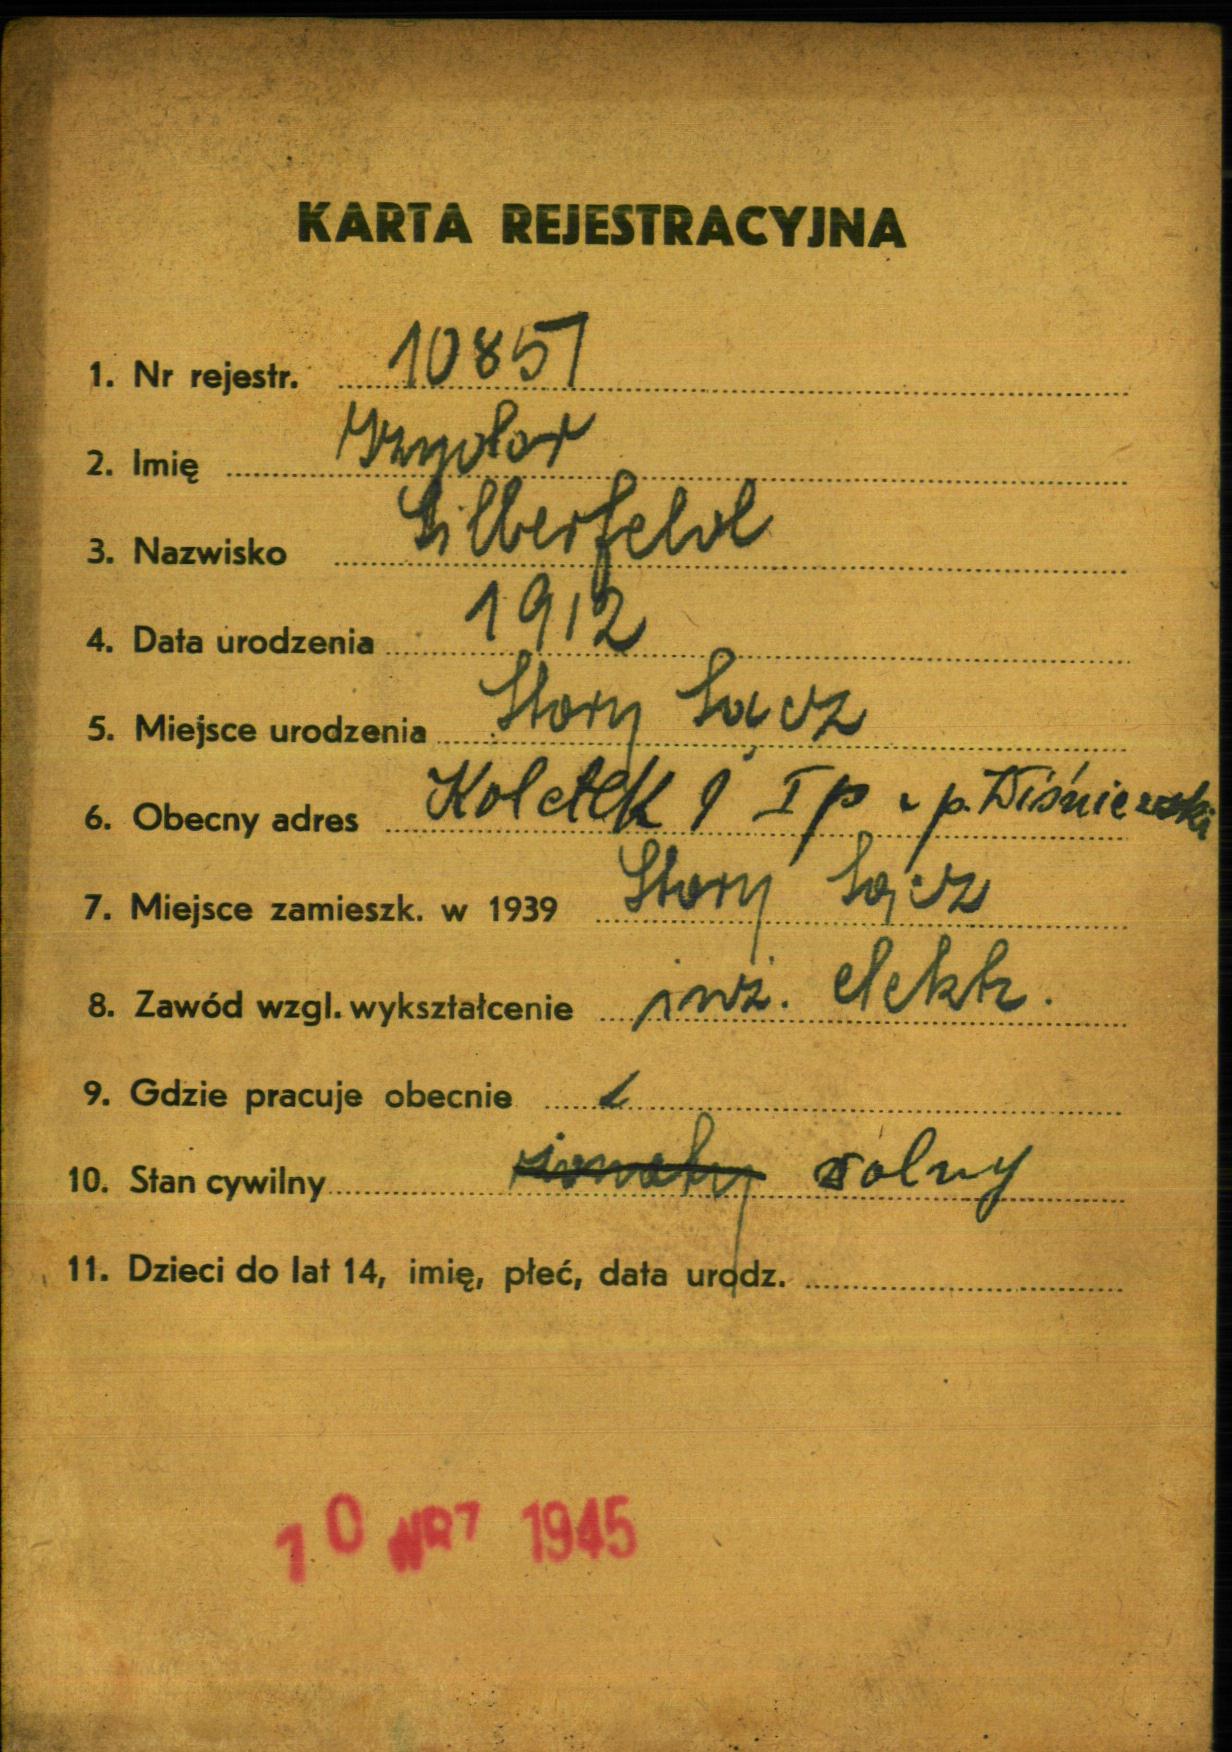 KARTA REJESTRACYJNA
1. Nr rejestr. 10857
2. Imię Izydor
3. Nazwisko Silberfeld
4. Data urodzenia 1912
5. Miejsce urodzenia Stary Sącz
6. Obecny adres Koletek 9 I p u p. Wiśniewski
7. Miejsce zamieszk. w 1939 Stary Sącz
8. Zawód wzgl. wykształcenie inż. elektr.
9. Gdzie pracuje obecnie
10. Stan cywilny żonaty wolny
11. Dzieci do lat 14, imię, płeć, data urodz.
10 1945